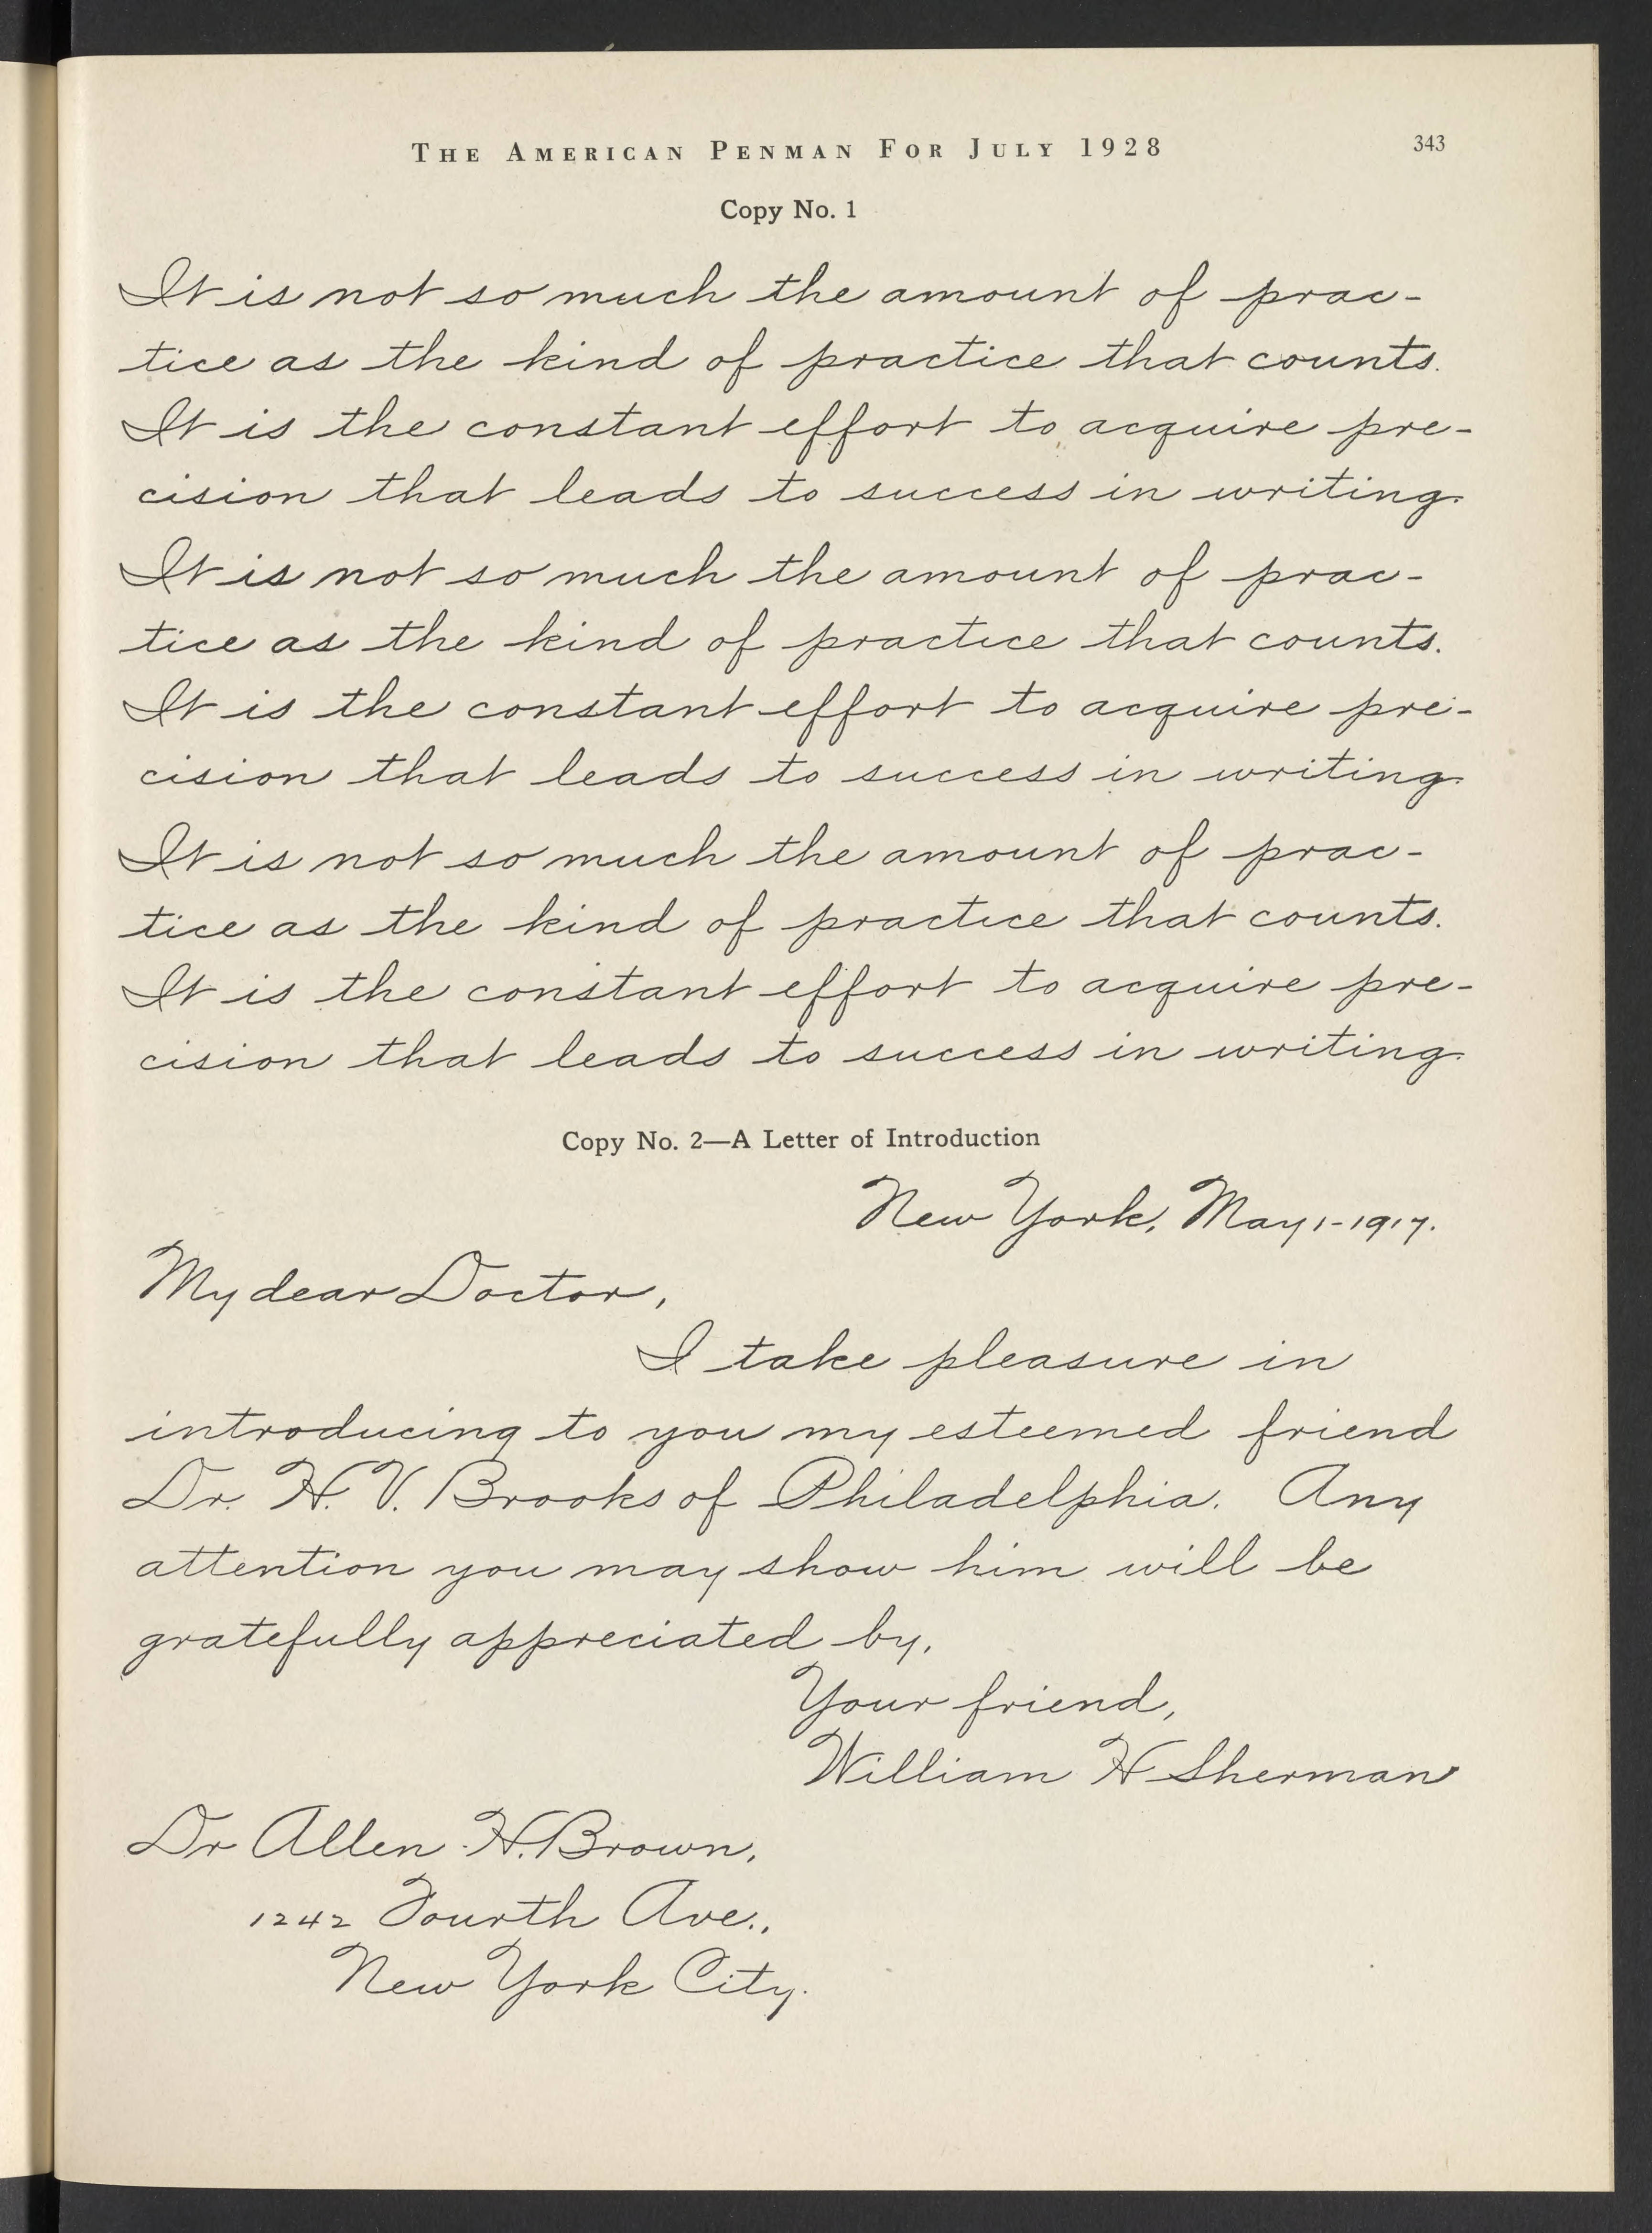 THE AMERICAN PENMAN FOR JULY 1928 343
Copy No. 1
It is not so much the amount of prac-
tice as the kind of practice that counts.
It is the constant effort to acquire pre-
cision that leads to success in writing.
It is not so much the amount of prac-
tice as the kind of practice that counts.
It is the constant effort to acquire pre-
cision that leads to success in writing.
It is not so much the amount of prac-
tice as the kind of practice that counts.
It is the constant effort to acquire pre-
cision that leads to success in writing.
Copy No. 2—A Letter of Introduction
New York, May 1-1917.
My dear Doctor,
I take pleasure in
introducing to you my esteemed friend
Dr. H. V. Brooks of Philadelphia. Any
attention you may show him will be
gratefully appreciated by,
Your friend,
William H Sherman
Dr Allen H. Brown,
1242 Fourth Ave.,
New York City.